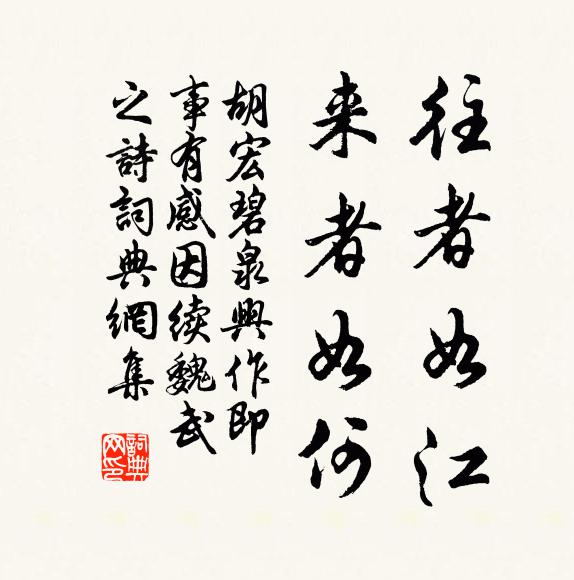 往者如江
来者如何
胡宏碧泉興作即
事有感因续魏武
之詩詞典網集
詞典網印